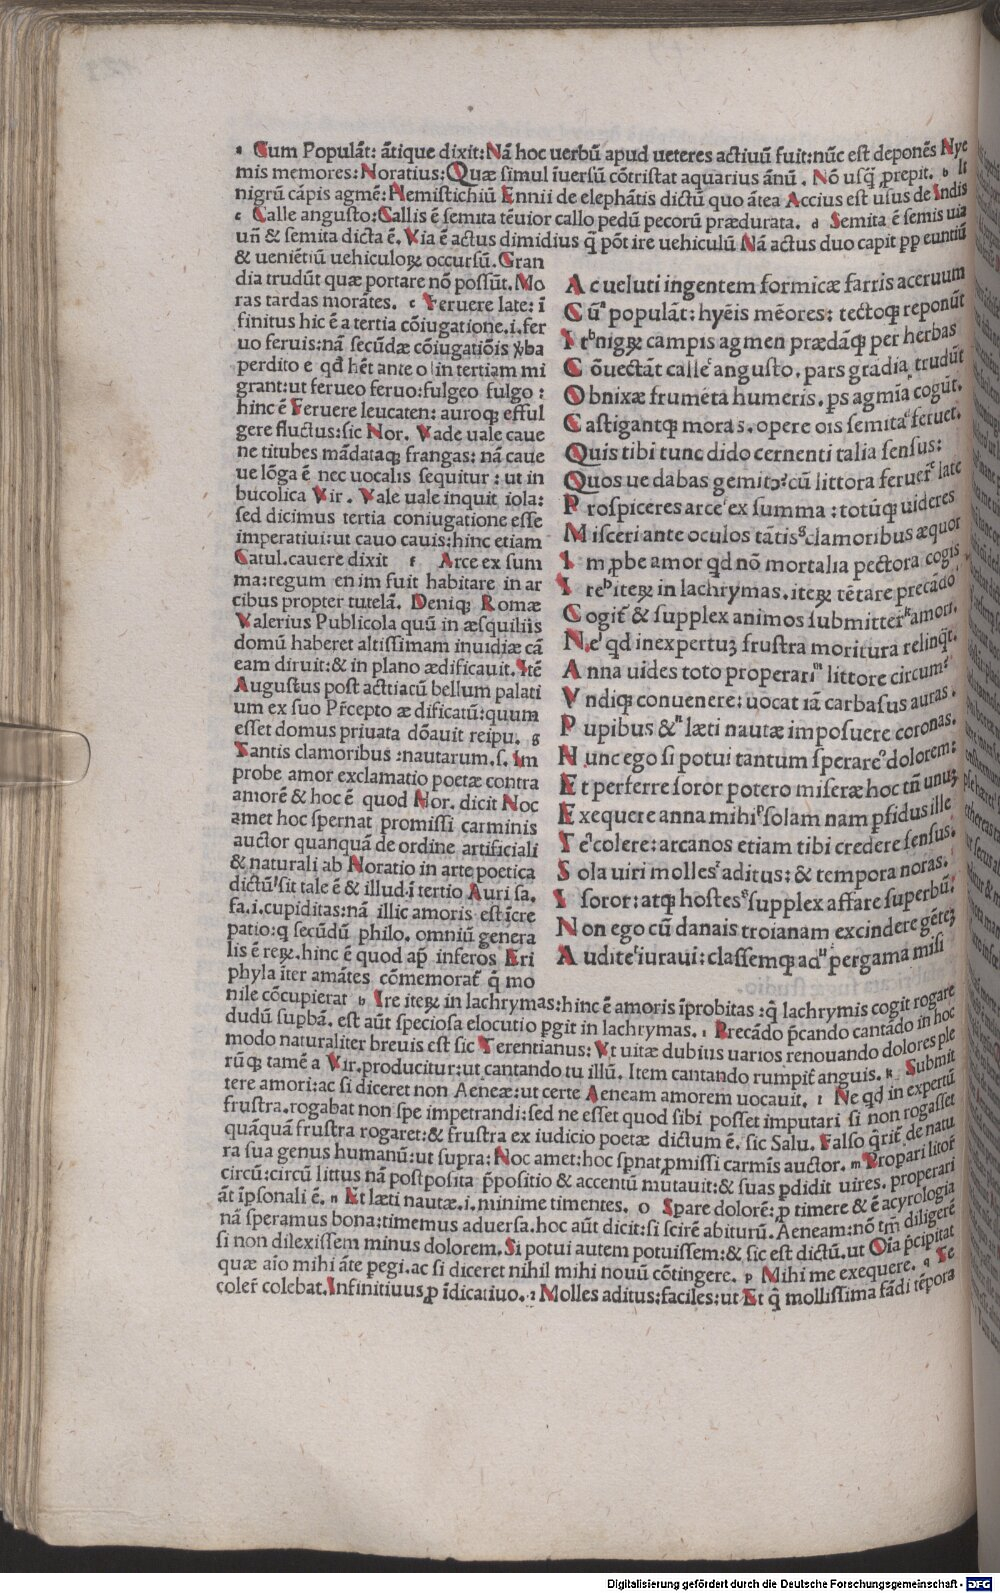 a Cum Populāt: ātique dixit: Nā hoc uerbū apud ueteres actiuū fuit: nūc est deponēs Hye
mis memores: Horatius: Quæ simul īuersū cōtristat aquarius ānū. Nō usq̄ prepit. b It
nigrū cāpis agmē: Hemistichiū Ennii de elephātis dictū quo ātea Accius est usus de Indis
c Calle angusto: Callis ē semita tēuior callo pedū pecorū prædurata. d Semita ē semis uia
uñ & semita dicta ē. Via ē actus dimidius q̄ pōt ire uehiculū Nā actus duo capit pp euntiū
& ueniētiū uehiculoꝝ occursū. Gran
dia trudūt quæ portare nō possūt. Mo
ras tardas morātes. e Feruere late: ī
finitus hic ē a tertia cōiugatione. i. fer
uo feruis: nā secūdæ cōiugatiōis ꝟba
perdito e qđ hēt ante o in tertiam mi
grant: ut ferueo feruo: fulgeo fulgo:
hinc ē Feruere leucaten: auroqꝫ efful
gere fluctus: sic Hor. Vade uale caue
ne titubes mādataqꝫ frangas: nā caue
ue lōga ē nec uocalis sequitur: ut in
bucolica Vir. Vale uale inquit iola:
sed dicimus tertia coniugatione esse
imperatiui: ut cauo cauis: hinc etiam
Catul. cauere dixit f Arce ex sum
ma: regum en im fuit habitare in ar
cibus propter tutelā. Deniqꝫ Romæ
Valerius Publicola quū in æsquiliis
domū haberet altissimam inuidiæ cā
eam diruit: & in plano ædificauit. Itē
Augustus post acttiacū bellum palati
um ex suo Pr̄cepto æ dificatū: quum
esset domus priuata dōauit reipu. g
Tantis clamoribus: nautarum. s. Im
probe amor exclamatio poetæ contra
amorē & hoc ē quod Hor. dicit Hoc
amet hoc spernat promissi carminis
auctor quanquā de ordine artificiali
& naturali ab Horatio in arte poetica
dictū sit tale ē & illud ī tertio Auri sa.
fa. i. cupiditas: nā illic amoris est īcre
patio: q secūdū philo. omniū genera
lis ē reꝝ. hinc ē quod ap̄ inferos Eri
phyla īter amātes cōmemorat̄ q̄ mo
nile cōcupierat h Ire iteꝝ in lachrymas: hinc ē amoris īprobitas: q̄ lachrymis cogit rogare
dudū supbā. est aūt speciosa elocutio pgit in lachrymas. i Precādo p̄cando cantādo in hoc
modo naturaliter breuis est sic Terentianus: Vt uitæ dubius uarios renouando dolores ple
rūqꝫ tamē a Vir. producitur: ut cantando tu illū. Item cantando rumpit̄ anguis. k Submit
tere amori: ac si diceret non Aeneæ: ut certe Aeneam amorem uocauit. l Ne qd in expertū
frustra. rogabat non spe impetrandi: sed ne esset quod sibi posset imputari si non rogasset
quāquā frustra rogaret: & frustra ex iudicio poetæ dictum ē. sic Salu. Falso q̄rit̄ de natu
ra sua genus humanū: ut supra: Hoc amet: hoc spnat pmissi carmīs auctor. m Propari litor̄
circū: circū littus nā postposita p̄positio & accentū mutauit: & suas pdidit uires. properari
āt īpsonali ē. n Et læti nautæ. i. minime timentes. o Spare dolorē: p timere & ē acyrologia
nā speramus bona: timemus aduersa. hoc aūt dicit: si scirē abiturū. Aeneam: nō tm̄ diligerē
si non dilexissem minus dolorem. Si potui autem potuissem: & sic est dictū. ut Oīa p̄cipitat
quæ aīo mihi āte pegi. ac si diceret nihil mihi nouū cōtingere. p Mihi me exequere. q Te
coler̄ colebat. Infinitiuus p īdicatiuo. r Molles aditus: faciles: ut Et q̄ mollissima fādi tēpora
A c ueluti ingentem formicæ farris aceruum
C ūᵃ populāt: hyēis mēores: tectoqꝫ reponūt
I tᵇ nigꝝ campis agmen prædāqꝫ per herbas
C ōuectāt calleᶜ angusto. pars grādia trudūt
O bnixæ frumēta humeris. ps agmīa cogūt.
C astigantqꝫ moras. opere oīs semitaᵈ feruet.
Q uis tibi tunc dido cernenti talia sensus:
Q uos ue dabas gemitꝰ: cū littora feruer̄ᵉ late
P rospiceres arceᶠ ex summa: totūqꝫ uideres
M isceri ante oculos tātisᵍ clamoribus æquor
I m pbe amor qđ nō mortalia pectora cogis
I reʰ iteꝝ in lachrymas. iteꝝ tētare precādoⁱ
C ogit̄ & supplex animos submitter̄ᵏ amori.
N eˡ qd inexpertuꝫ frustra moritura relinqt̄.
A nna uides toto properariᵐ littore circum:
V ndiqꝫ conuenere: uocat iā carbasus auras.
P upibus &ⁿ læti nautæ imposuere coronas.
H unc ego si potui tantum sperareᵒ dolorem:
E t perferre soror potero miseræ hoc tñ unuꝫ
E xequere anna mihiᵖ solam nam pfidus ille
T e colere: arcanos etiam tibi credere sensus.
S ola uiri mollesʳ aditus: & tempora noras.
I soror: atqꝫ hostesˢ supplex affare superbū:
N on ego cū danais troianam excindere gēteꝫ
A uditeᵗ iuraui: classemqꝫ adᵘ pergama misi
Digitalisierung gefördert durch die Deutsche Forschungsgemeinschaft - DFG